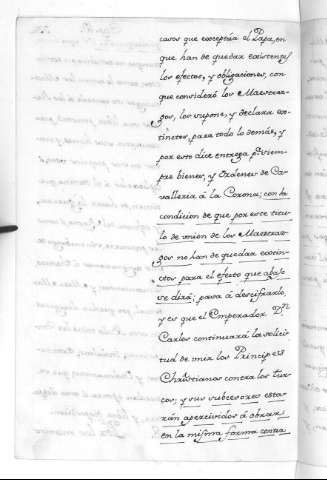 casos que exceptúa el Papa, en
que han de quedar existentes
los efectos, y obligaciones, con
que consideró los Maestraz-
gos, los supone, y declara ex-
tinctos, para todo lo demás, y
por esto dice entrega p.ª siem-
pre bienes, y Ordenes de Ca-
valleria á la Corona; con la
condicion de que por este titu-
lo de union de los Maestraz-
gos no han de quedar extin-
ctos para el efecto que abaxo
se dirá; pasa á descifrarlo,
y es que el Emperador D.n
Carlos continuará la solici-
tud de unir los Principes
Christianos contra los Tur-
cos; y sus subcesores esta-
rán apercividos á obrar
en la misma forma contra